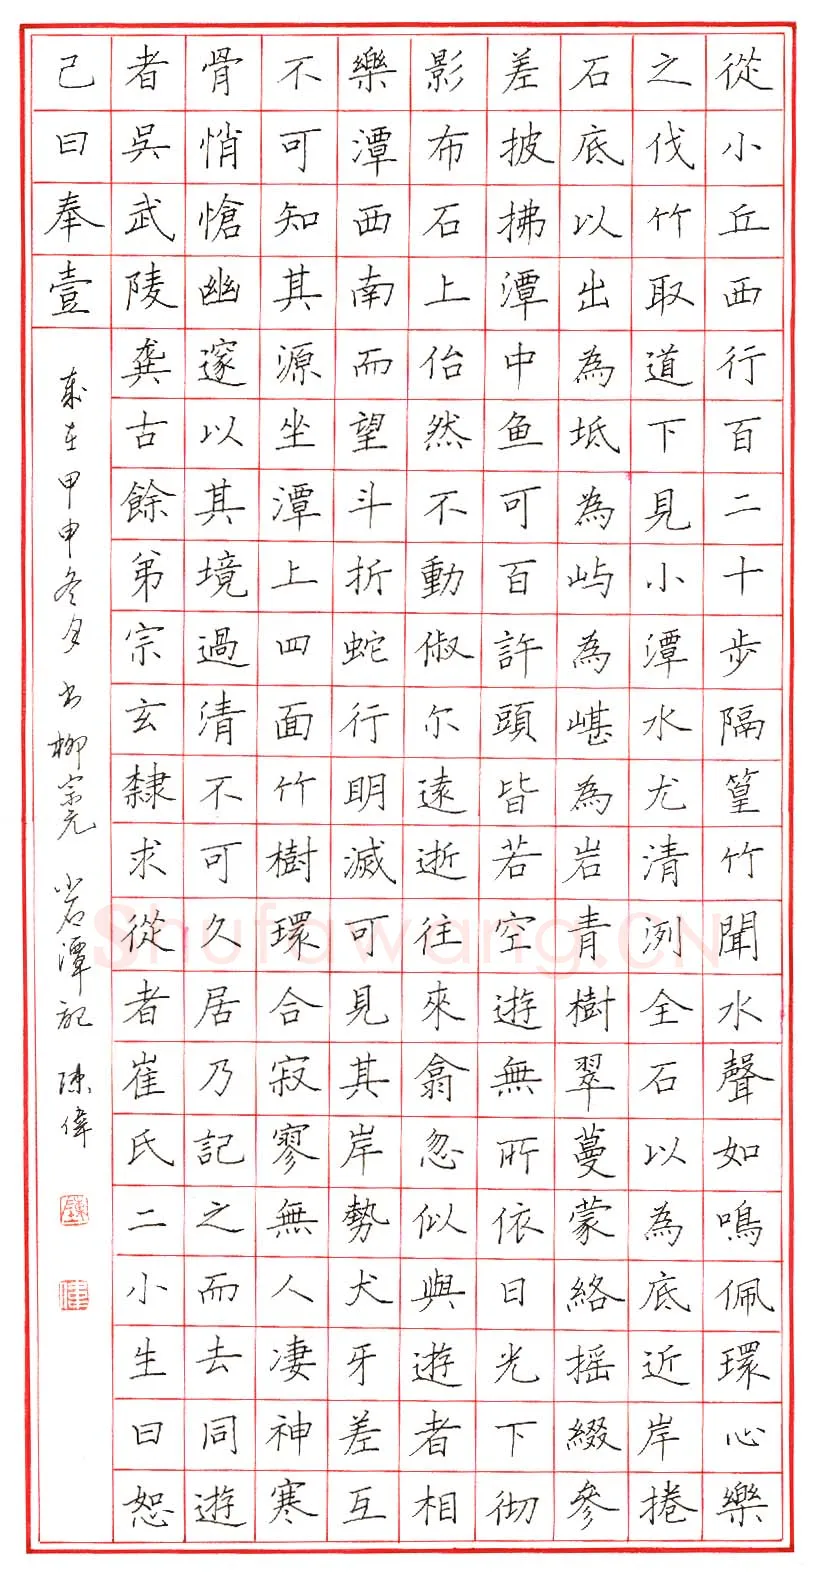 從小丘西行百二十步隔篁竹聞水聲如鳴佩環心樂
之伐竹取道下見小潭水尤清洌全石以為底近岸捲
石底以出為坻為屿為嵁為岩青樹翠蔓蒙絡摇綴參
差披拂潭中鱼可百許頭皆若空遊無所依日光下彻
影布石上佁然不動俶尔遠逝往來翕忽似與遊者相
樂潭西南而望斗折蛇行明滅可見其岸勢犬牙差互
不可知其源坐潭上四面竹樹環合寂寥無人凄神寒
骨悄愴幽邃以其境過清不可久居乃記之而去同遊
者吳武陵龔古餘弟宗玄隸求從者崔氏二小生曰恕
己曰奉壹
歲在甲申冬月 书柳宗元 小石潭記 陳偉
陳
偉
Shufawang.CN